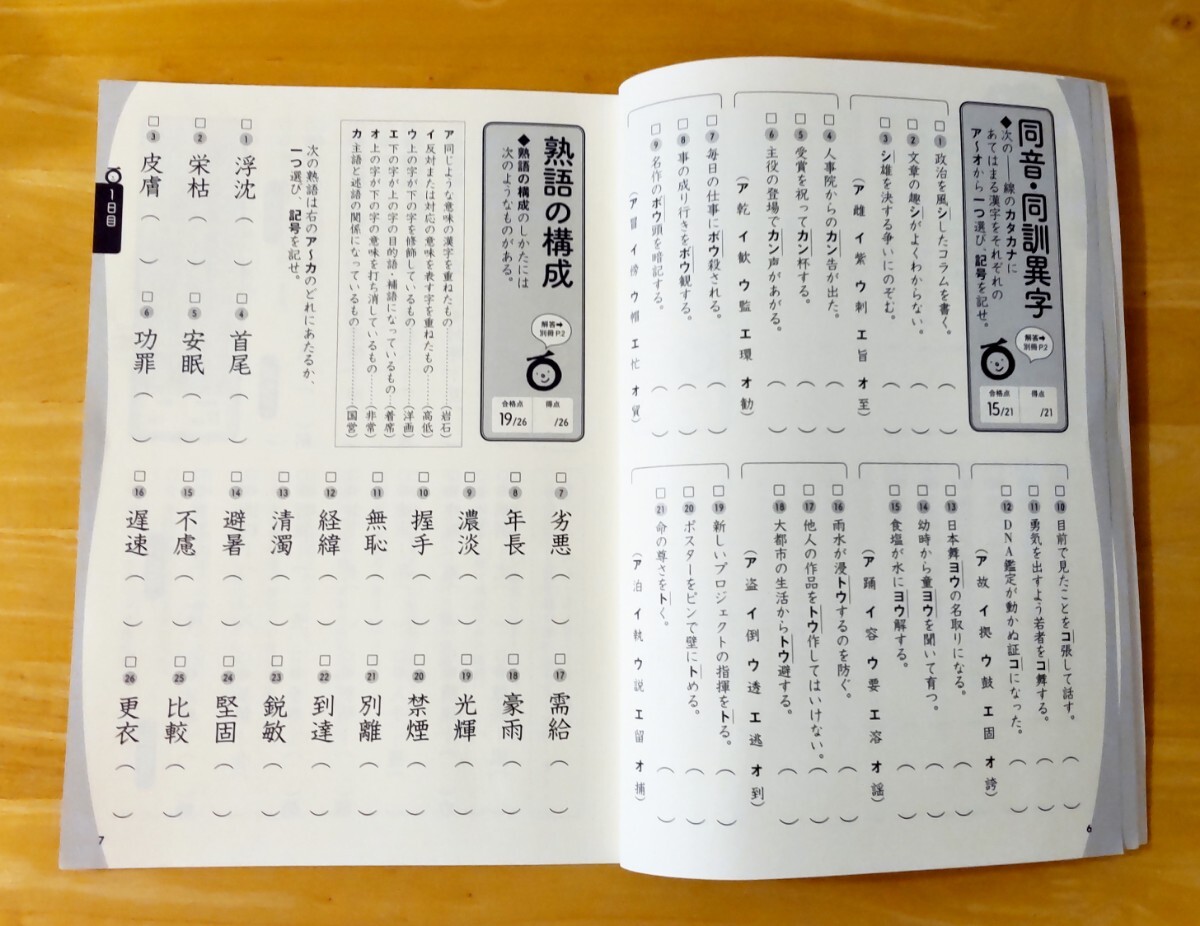 同音・同訓異字
◆次の――線のカタカナに
あてはまる漢字をそれぞれの
ア〜オから一つ選び、記号を記せ。
解答➡
別冊P2
合格点
15/21
得点
/21
□1 政治を風シしたコラムを書く。（　）
□2 文章の趣シがよくわからない。（　）
□3 シ雄を決する争いにのぞむ。（　）
（ア 雌 イ 紫 ウ 刺 エ 旨 オ 至）
□4 人事院からのカン告が出た。（　）
□5 受賞を祝ってカン杯する。（　）
□6 主役の登場でカン声があがる。（　）
（ア 乾 イ 歓 ウ 監 エ 環 オ 勧）
□7 毎日の仕事にボウ殺される。（　）
□8 事の成り行きをボウ観する。（　）
□9 名作のボウ頭を暗記する。（　）
（ア 冒 イ 傍 ウ 帽 エ 忙 オ 貿）
□10 目前で見たことをコ張して話す。（　）
□11 勇気を出すよう若者をコ舞する。（　）
□12 DNA鑑定が動かぬ証コになった。（　）
（ア 故 イ 拠 ウ 鼓 エ 固 オ 誇）
□13 日本舞ヨウの名取りになる。（　）
□14 幼時から童ヨウを聞いて育つ。（　）
□15 食塩が水にヨウ解する。（　）
（ア 踊 イ 容 ウ 要 エ 溶 オ 謡）
□16 雨水が浸トウするのを防ぐ。（　）
□17 他人の作品をトウ作してはいけない。（　）
□18 大都市の生活からトウ避する。（　）
（ア 盗 イ 倒 ウ 透 エ 逃 オ 到）
□19 新しいプロジェクトの指揮をトる。（　）
□20 ポスターをピンで壁にトめる。（　）
□21 命の尊さをトく。（　）
（ア 泊 イ 執 ウ 説 エ 留 オ 捕）
6
熟語の構成
◆熟語の構成のしかたには
次のようなものがある。
解答➡
別冊P2
合格点
19/26
得点
/26
ア 同じような意味の漢字を重ねたもの…………（岩石）
イ 反対または対応の意味を表す字を重ねたもの（高低）
ウ 上の字が下の字を修飾しているもの…………（洋画）
エ 下の字が上の字の目的語・補語になっているもの（着席）
オ 上の字が下の字の意味を打ち消しているもの…（非常）
カ 主語と述語の関係になっているもの…………（国営）
次の熟語は右のア〜カのどれにあたるか、
一つ選び、記号を記せ。
□1 浮沈（　）
□2 栄枯（　）
□3 皮膚（　）
□4 首尾（　）
□5 安眠（　）
□6 功罪（　）
□7 劣悪（　）
□8 年長（　）
□9 濃淡（　）
□10 握手（　）
□11 無恥（　）
□12 経緯（　）
□13 清濁（　）
□14 避暑（　）
□15 不慮（　）
□16 遅速（　）
□17 需給（　）
□18 豪雨（　）
□19 光輝（　）
□20 禁煙（　）
□21 別離（　）
□22 到達（　）
□23 鋭敏（　）
□24 堅固（　）
□25 比較（　）
□26 更衣（　）
1日目
7